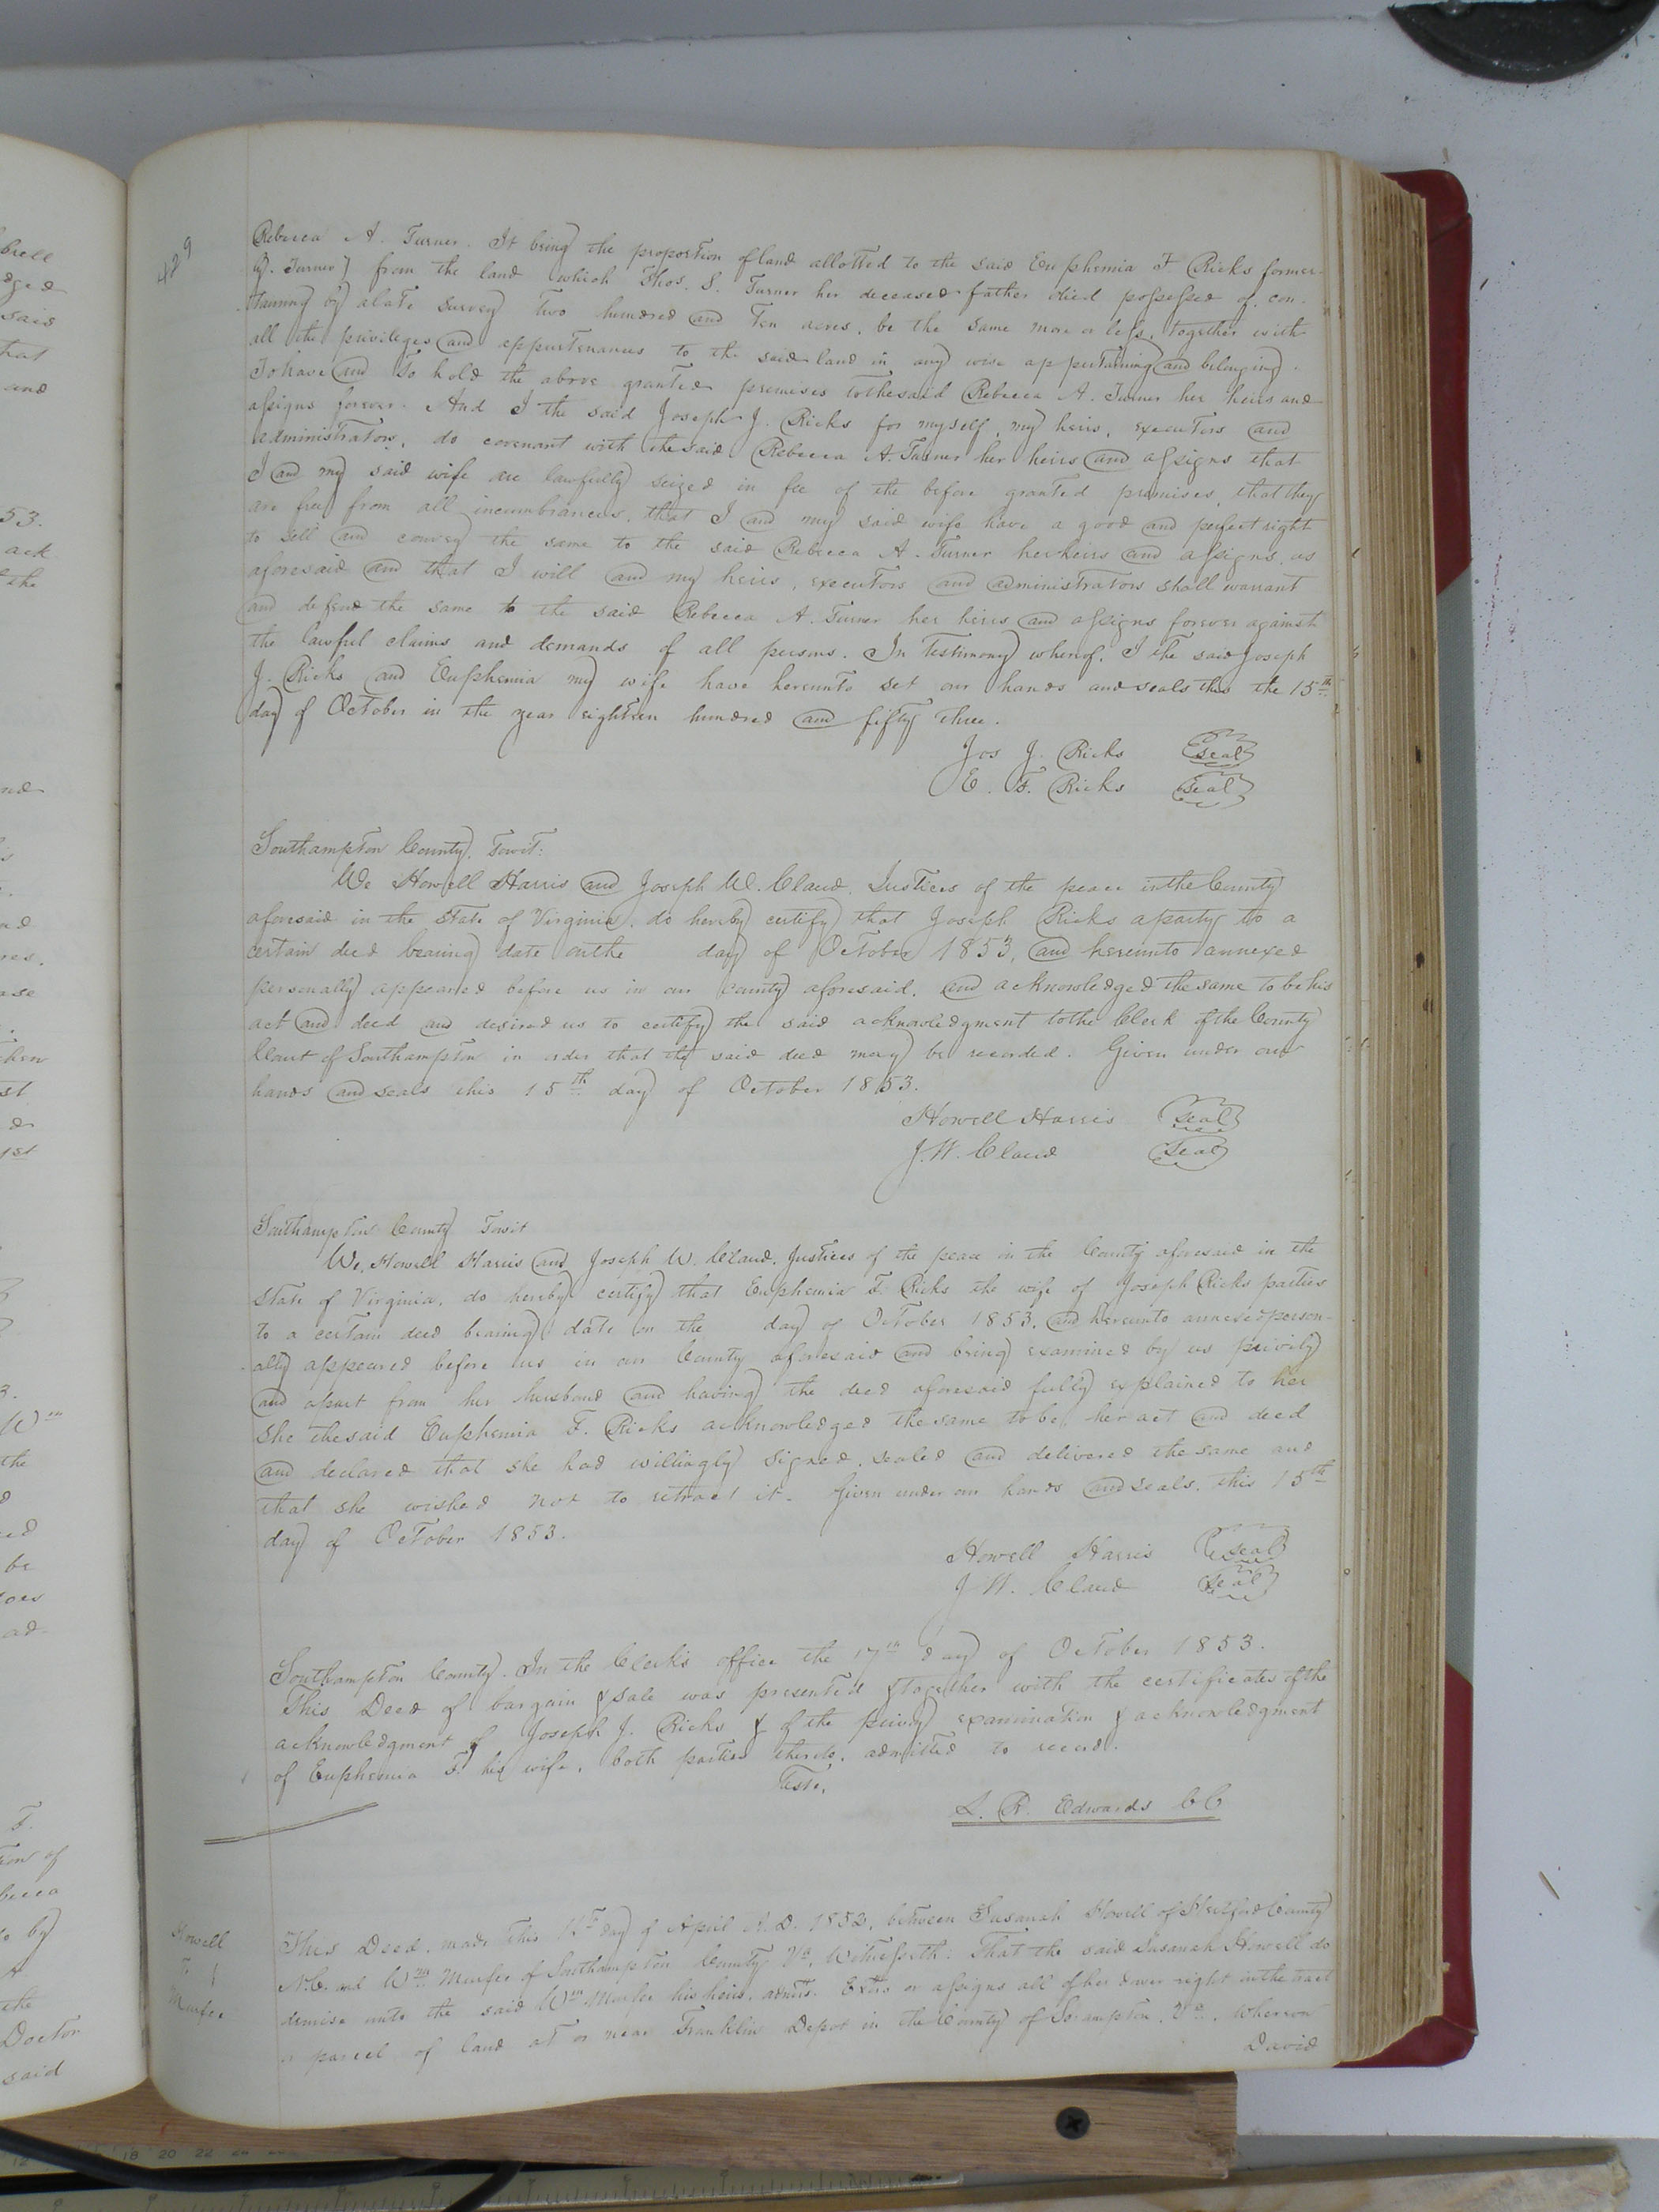 429
Rebecca A. Turner. It being the proportion of land allotted to the said Euphemia F. Ricks former-
ly Turner} from the land which Thos. S. Turner her deceased father died possessed of, con-
-taining by a late survey Two hundred and Ten acres, be the same more or less, together with
all the privileges and appurtenances to the said land in any wise appertaining and belonging.
To have and to hold the above granted premises to the said Rebecca A. Turner her heirs and
assigns forever. And I the said Joseph J. Ricks for myself, my heirs, executors and
administrators, do covenant with the said Rebecca A. Turner her heirs and assigns that
I and my said wife are lawfully seized in fee of the before granted premises, that they
are free from all incumbrances, that I and my said wife have a good and perfect right
to sell and convey the same to the said Rebecca A. Turner her heirs and assigns, as
aforesaid and that I will and my heirs, executors and administrators shall warrant
and defend the same to the said Rebecca A. Turner her heirs and assigns forever against
the lawful claims and demands of all persons. In Testimony whereof, I the said Joseph
J. Ricks and Euphemia my wife have hereunto set our hands and seals this the 15th
day of October in the year eighteen hundred and fifty three.
Jos J. Ricks seal
E. F. Ricks seal
Southampton County, Towit:
We Howell Harris and Joseph W. Claud, Justices of the peace in the County
aforesaid in the State of Virginia, do hereby certify that Joseph Ricks a party to a
certain deed bearing date on the day of October 1853, and hereunto annexed
personally appeared before us in our County aforesaid, and acknowledged the same to be his
act and deed and desired us to certify the said acknowledgment to the Clerk of the County
Court of Southampton in order that the said deed may be recorded. Given under our
hands and seals this 15th day of October 1853.
Howell Harris seal
J. W. Claud seal
Southampton County Towit
We, Howell Harris and Joseph W. Claud, Justices of the peace in the County aforesaid in the
State of Virginia, do hereby certify that Euphemia F. Ricks the wife of Joseph Ricks parties
to a certain deed bearing date on the day of October 1853, and hereunto annexed person-
-ally appeared before us in our County aforesaid and being examined by us privily
and apart from her husband and having the deed aforesaid fully explained to her
she the said Euphemia F. Ricks acknowledged the same to be her act and deed
and declared that she had willingly signed, sealed and delivered the same and
that she wished not to retract it. Given under our hands and seals, this 15th
day of October 1853.
Howell Harris seal
J. W. Claud seal
Southampton County. In the Clerk's office the 17th day of October 1853.
This Deed of bargain & sale was presented & together with the certificates of the
acknowledgment of Joseph J. Ricks & of the privy examination & acknowledgment
of Euphemia F. his wife, both parties thereto, admitted to record.
Teste,
L. R. Edwards CC
Howell
To }
Murfee
This Deed, made this day of April A. D. 1853, between Susanah Howell of Hertford County
N.C. and Wm Murfee of Southampton County Va, Witnesseth: That the said Susanah Howell do
demise unto the said Wm Murfee his heirs, admts. Extrs or assigns all of her dower right in the tract
or parcel of land at or near Franklin Depot in the County of So:ampton, Va., whereon
David